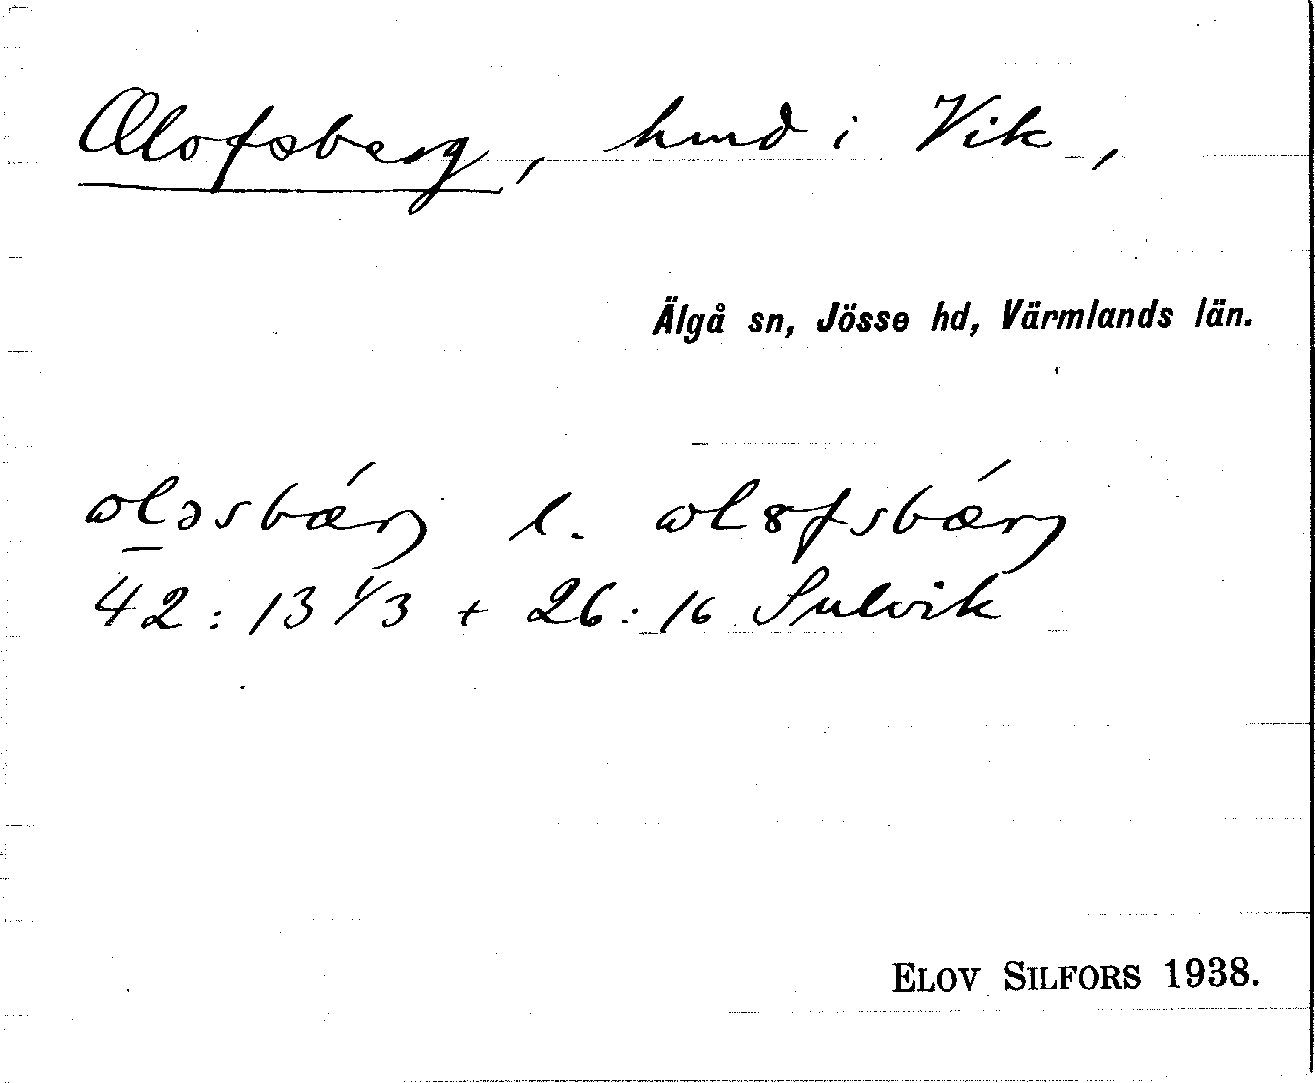 Olofsberg, hmd i Vik,
Älgå sn, Jösse hd, Värmlands län.
ωlɔsbǽrj l. ωl8fsbǽrj
42:13 1/3 + 26:16 Sulvik
ELOV SILFORS 1938.